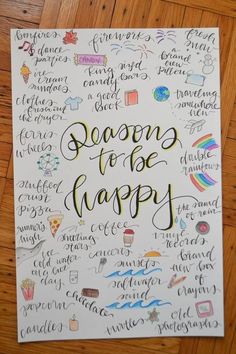 bonfires
fireworks
fresh
snow
dance
parties
CANDY
king sized
candy bars
a
brand
new
pillow
ice
cream
sundaes
clothes
fresh out
the dryer
a
good
book
traveling
somewhere
new
ferris
wheels
Reasons
to be
happy
double
rainbows
stuffed
crust
pizza
the sound
of rain
runner's
high
shooting
stars
coffee
vinyl
records
ice cold
water
on a hot
day
concerts
sunsets
saltwater
and
sand
brand
new box
of
crayons
popcorn
chocolate
candles
turtles
old
photographs